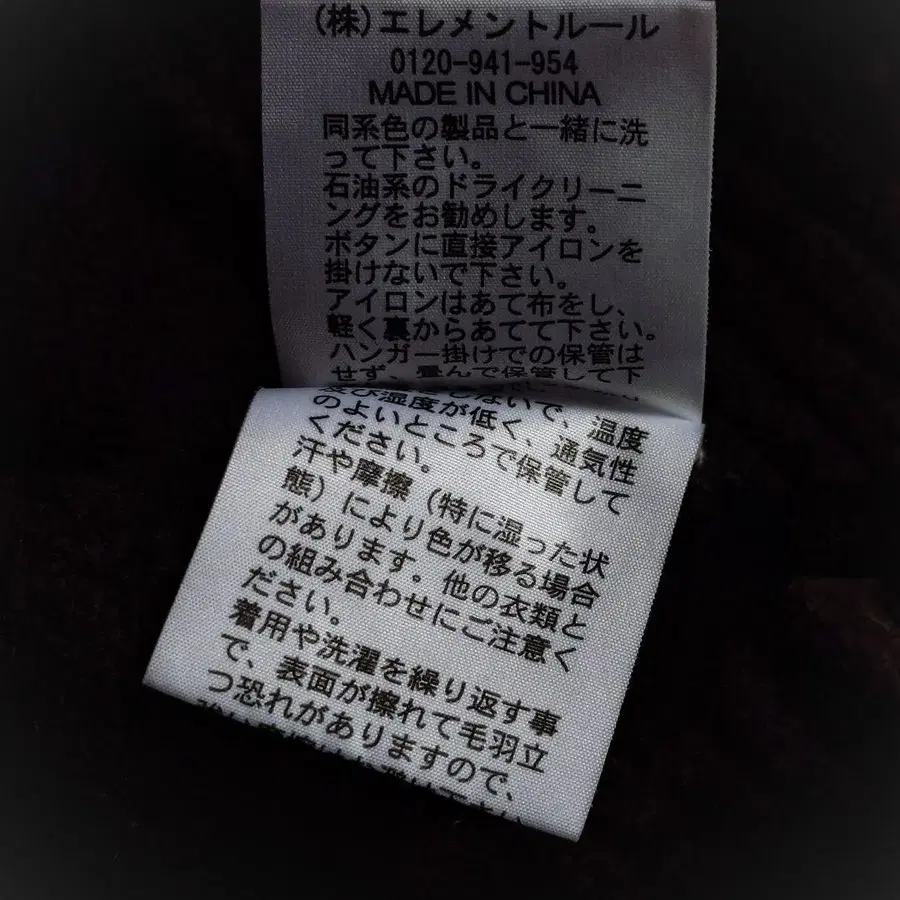 (株)エレメントルール
0120-941-954
MADE IN CHINA
同系色の製品と一緒に洗
って下さい。
石油系のドライクリーニ
ングをお勧めします。
ボタンに直接アイロンを
掛けないで下さい。
アイロンはあて布をし、
軽く裏からあてて下さい。
ハンガー掛けでの保管は
せず、畳んで保管して下
ないで、温度
及び湿度が低く、通気性
のよいところで保管して
ください。
汗や摩擦（特に湿った状
態）により色が移る場合
があります。他の衣類と
の組み合わせにご注意く
ださい。
着用や洗濯を繰り返す事
で、表面が擦れて毛羽立
つ恐れがありますので、